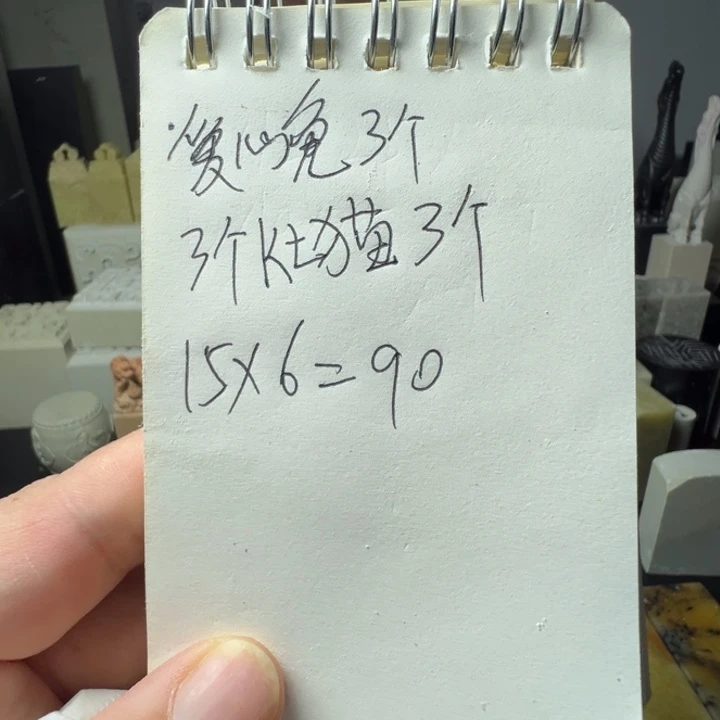 兔3个
3个Kt猫3个
15×6=90